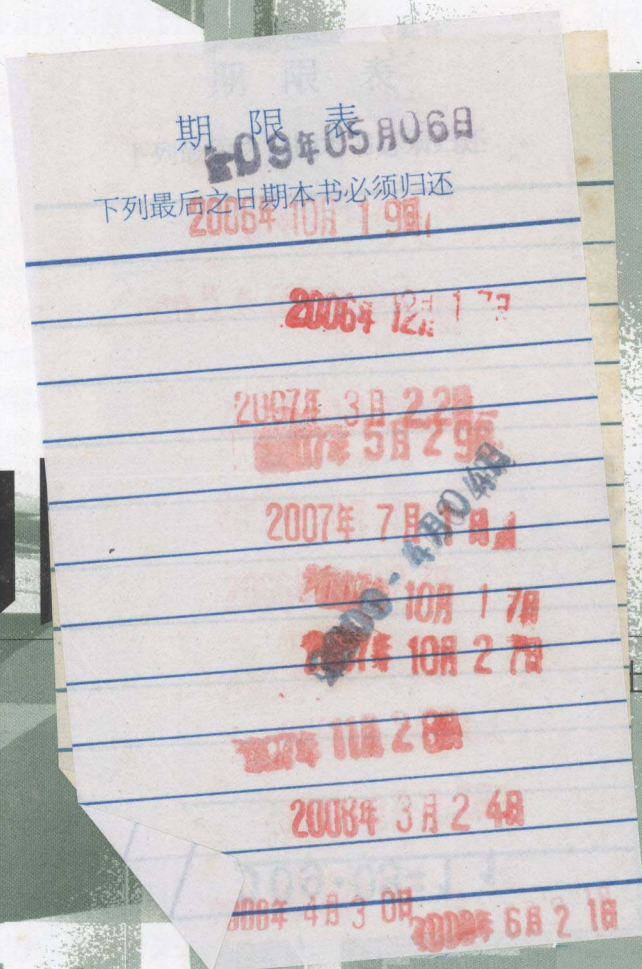 期限表
09年05月06日
下列最后之日期本书必须归还
2006年10月19日
2006年12月17日
2007年3月22日
2007年5月29日
2007年7月
4月04日
10月17日
2007年10月27日
11月28日
2008年3月24日
2008年4月30日
2008年6月21日